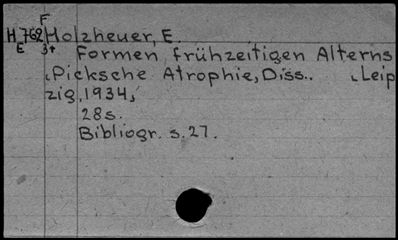 F
H 762 Holzheuer, E.
E 3+ Formen frühzeitigen Alterns
Picksche Atrophie, Diss.. Leip
zig, 1934,
28s.
Bibliogr. s. 27.